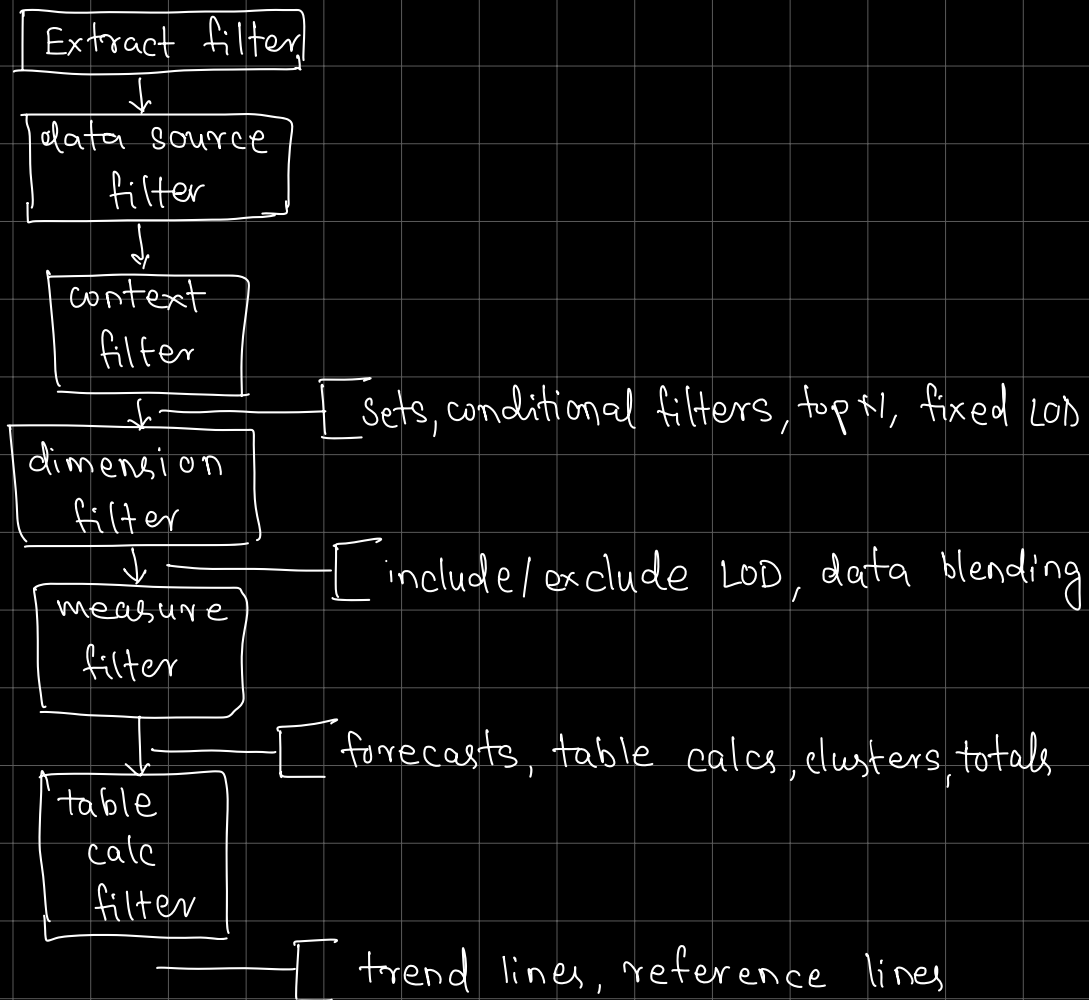 Extract filter
data source
filter
context
filter
sets, conditional filters, top N, fixed LOD
dimension
filter
include/exclude LOD, data blending
measure
filter
forecasts, table calcs, clusters, totals
table
calc
filter
trend lines, reference lines